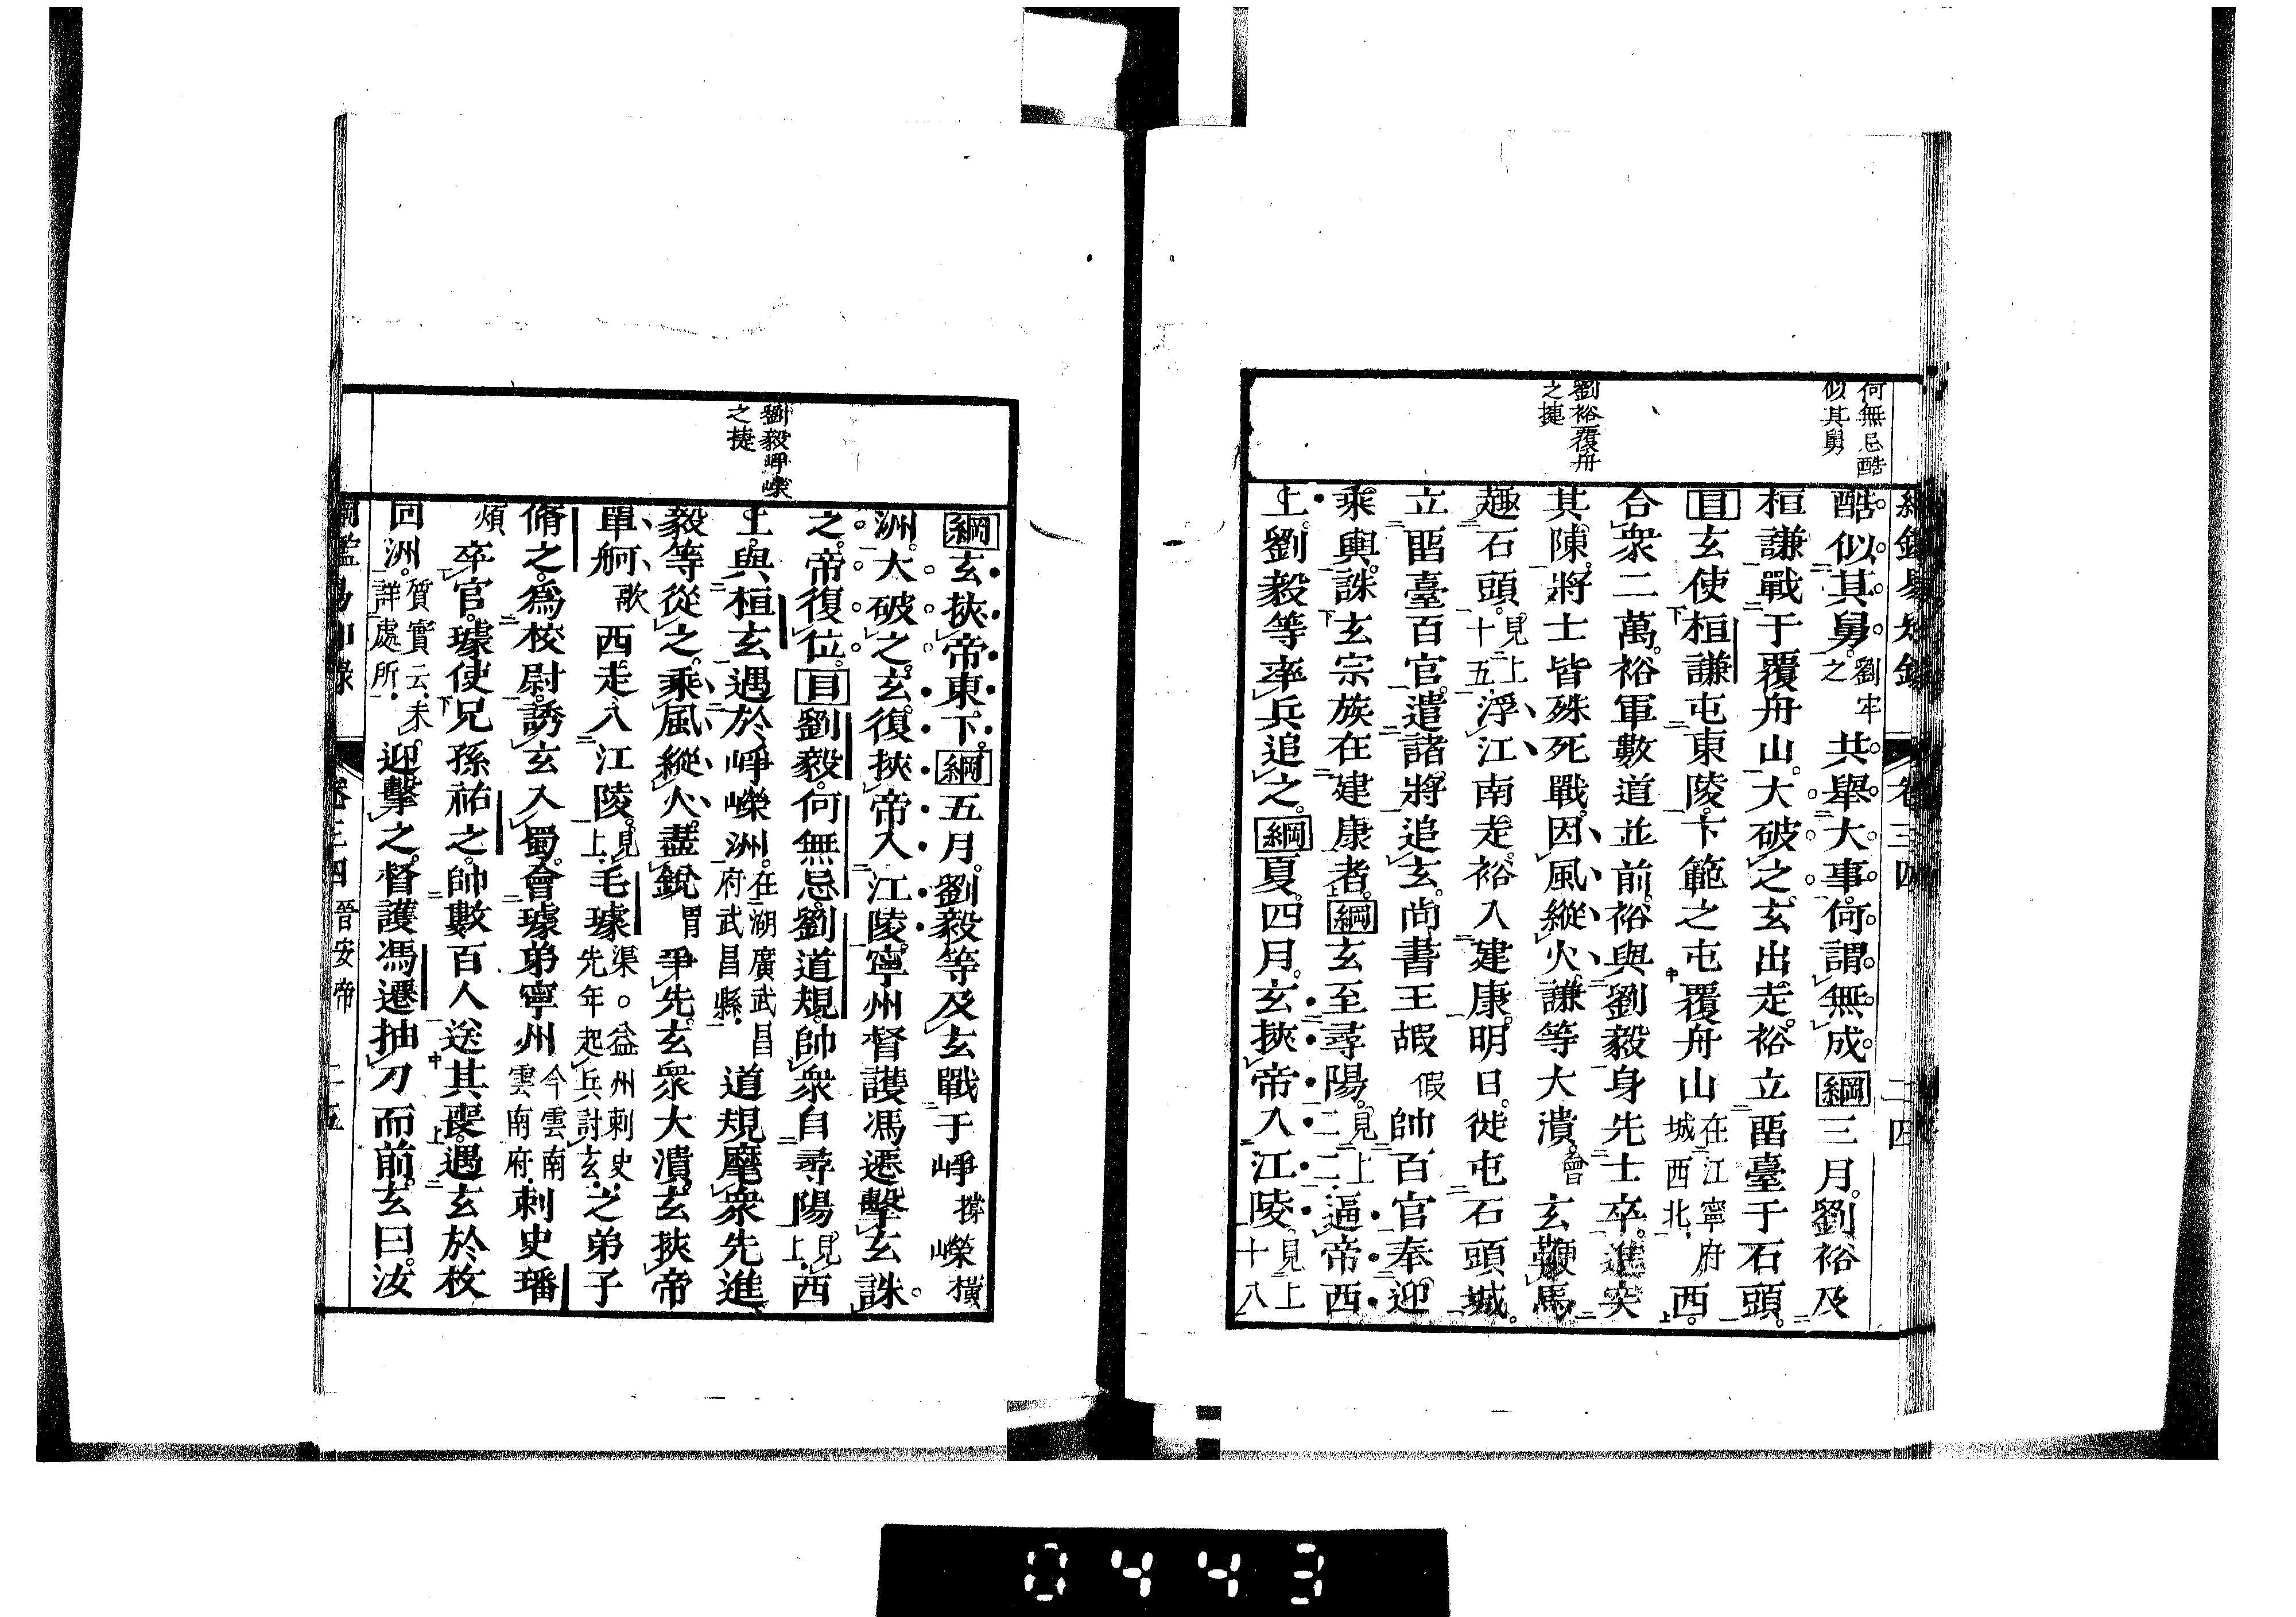 綱鑑易知錄 卷三四 二四
何無忌酷
似其舅
劉裕覆舟
之捷
酷似其舅劉牢之共舉大事何謂無成綱三月劉裕及
桓謙戰于覆舟山大破之玄出走裕立畱臺于石頭
目玄使桓謙屯東陵卞範之屯覆舟山在江寧府城西北西
合衆二萬裕軍數道並前裕與劉毅身先士卒進突
其陳將士皆殊死戰因風縱火謙等大潰會玄鞭馬
趣石頭見上十五浮江南走裕入建康明日徙屯石頭城
立畱臺百官遣諸將追玄尚書王嘏假帥百官奉迎
乘輿誅玄宗族在建康者綱玄至尋陽見上二二逼帝西
上劉毅等率兵追之綱夏四月玄挾帝入江陵見上十八
劉毅崢嶸
之捷
綱玄挾帝東下綱五月劉毅等及玄戰于崢撐嶸橫
洲大破之玄復挾帝入江陵寧州督護馮遷擊玄誅
之帝復位目劉毅何無忌劉道規帥衆自尋陽見上西
上與桓玄遇於崢嶸洲在湖廣武昌府武昌縣道規麾衆先進
毅等從之乘風縱火盡銳爭先玄衆大潰玄挾帝
單舸歌西走入江陵見上毛璩渠○益州刺史先年起兵討玄之弟子
脩之爲校尉誘玄入蜀會璩弟寧州今雲南雲南府刺史璠
煩卒官璩使兄孫祐之帥數百人送其喪遇玄於枚
回洲質實云未詳處所迎擊之督護馮遷抽刀而前玄曰汝
綱鑑易知錄 卷三四 晉安帝 二五
0443